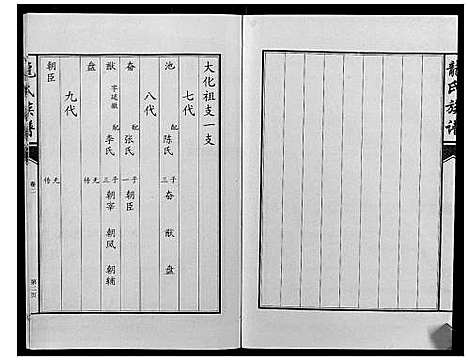 龍氏族譜
大化祖支一支
七代
池 配陳氏 子三 奋 猷 盘
八代
奋 配张氏 子一 朝臣
猷 字廷徽 配李氏 子三 朝宰 朝凤 朝辅
盘 无传
九代
朝臣 无传
龍氏族譜 卷二 第二页